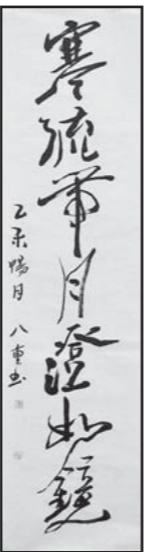 寒流帯月澄如鏡
乙未暢月 八重書